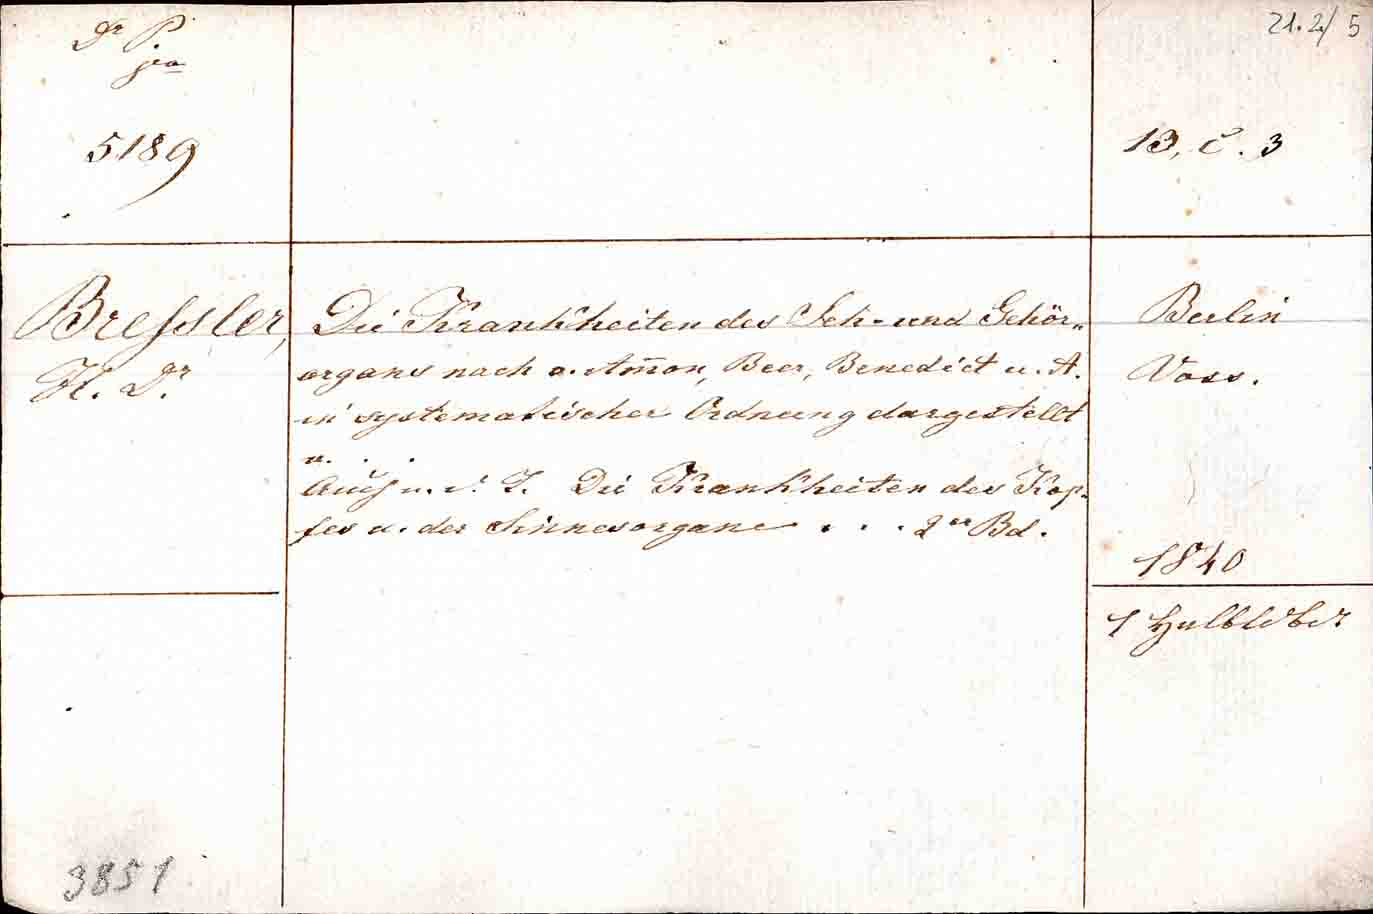 Dr P.
21. 2/ 5
5189
13, C. 3
Bressler,
H. Dr.
Die Krankheiten des Seh- und Gehör-
organs nach v. Am̄on, Beer, Benedict u. A.
in systematischer Ordnung dargestellt
u. . .
Auch u. d. T. Die Krankheiten des Kop-
fes u. der Sinnesorgane . . . 2er Bd.
Berlin
Voss.
1840
1 Halbleder
3851